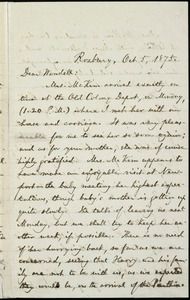 Roxbury, Oct. 5, 1873.
Dear Wendell:
Mrs. McKim arrived exactly on
time at the Old Colony Depot, on Monday,
(1.20 P.M.) where I met her with our
house and carriage. It was very pleas-
urable for me to see her so soon again;
and as for your mother, she was of course
highly gratified. Mrs. McKim appears to
have made an enjoyable visit at New-
port, the baby meeting her highest expec-
tations, though baby's mother is getting up
quite slowly. She talks of leaving us next
Monday, but we shall try to keep her an-
other week, if possible. There is no need
of her hurrying back, so far as we are
concerned, seeing that Harry and his fam-
ily are not to be with us, as we expected
they would be, on the arrival of the